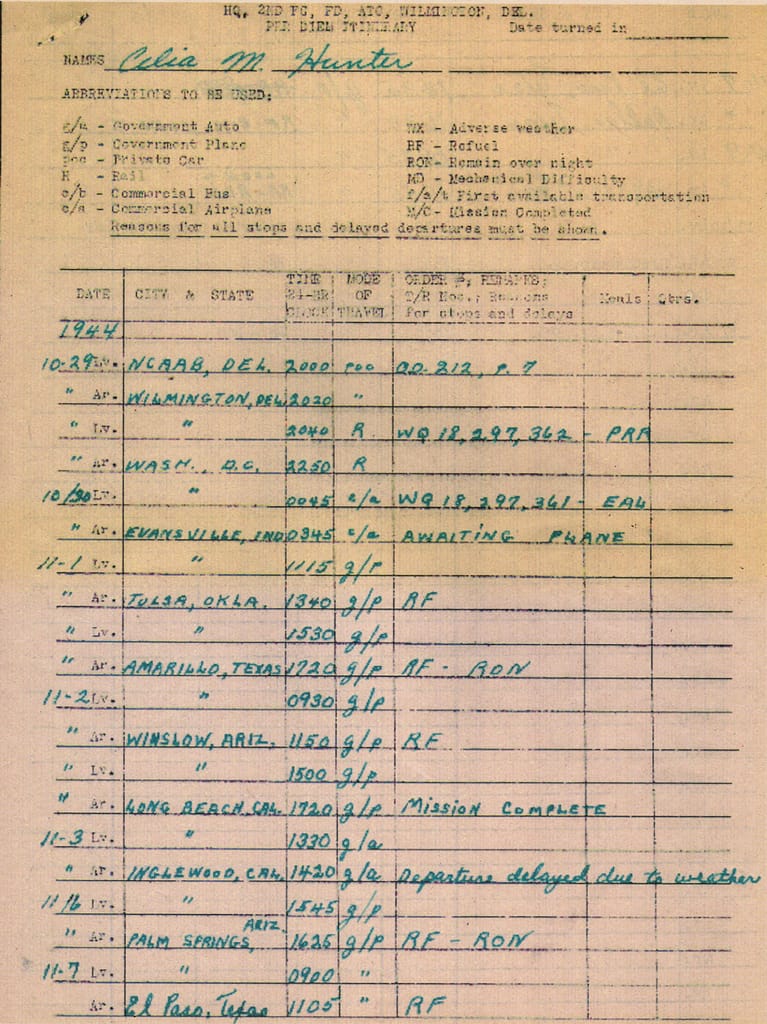 HQ, 2ND FG, FD, ATC, WILMINGTON, DEL.
PER DIEM ITINERARY Date turned in
NAMES Celia M Hunter
ABBREVIATIONS TO BE USED:
g/a - Government Auto WX - Adverse weather
g/p - Government Plane RF - Refuel
poc - Private Car RON- Remain over night
R - Rail MD - Mechanical Difficulty
c/b - Commercial Bus f/a/t First available transportation
c/a - Commercial Airplane M/C- Mission Completed
Reasons for all stops and delayed departures must be shown.
DATE CITY & STATE TIME 24-HR CLOCK MODE OF TRAVEL ORDER #; REMARKS; T/R Nos.; Reasons for stops and delays Meals Qtrs.
1944
10-29 Lv. NCAAB, DEL. 2000 poc O.O. 212, P. 7
" Ar. WILMINGTON, DEL 2020 "
" Lv. " 2040 R WQ 18,297,362 - PRR
" Ar. WASH. D.C. 2250 R
10/30 Lv. " 0045 c/a WQ 18,297,361 - EAL
" Ar. EVANSVILLE, IND 0345 c/a AWAITING PLANE
11-1 Lv. " 1115 g/p
" Ar. TULSA, OKLA. 1340 g/p RF
" Lv. " 1530 g/p
" Ar. AMARILLO, TEXAS 1720 g/p RF - RON
11-2 Lv. " 0930 g/p
" Ar. WINSLOW, ARIZ. 1150 g/p RF
" Lv. " 1500 g/p
" Ar. LONG BEACH, CAL. 1720 g/p MISSION COMPLETE
11-3 Lv. " 1330 g/a
" Ar. INGLEWOOD, CAL. 1420 g/a Departure delayed due to weather
11/6 Lv. " 1545 g/p
" Ar. PALM SPRINGS, ARIZ. 1625 g/p RF - RON
11-7 Lv. " 0900 "
Ar. El Paso, Texas 1105 " RF